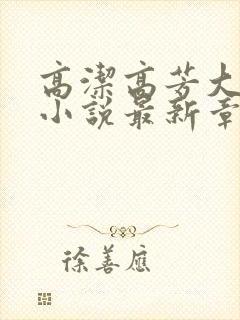 高潔高芳大
小說最新章
徐善應